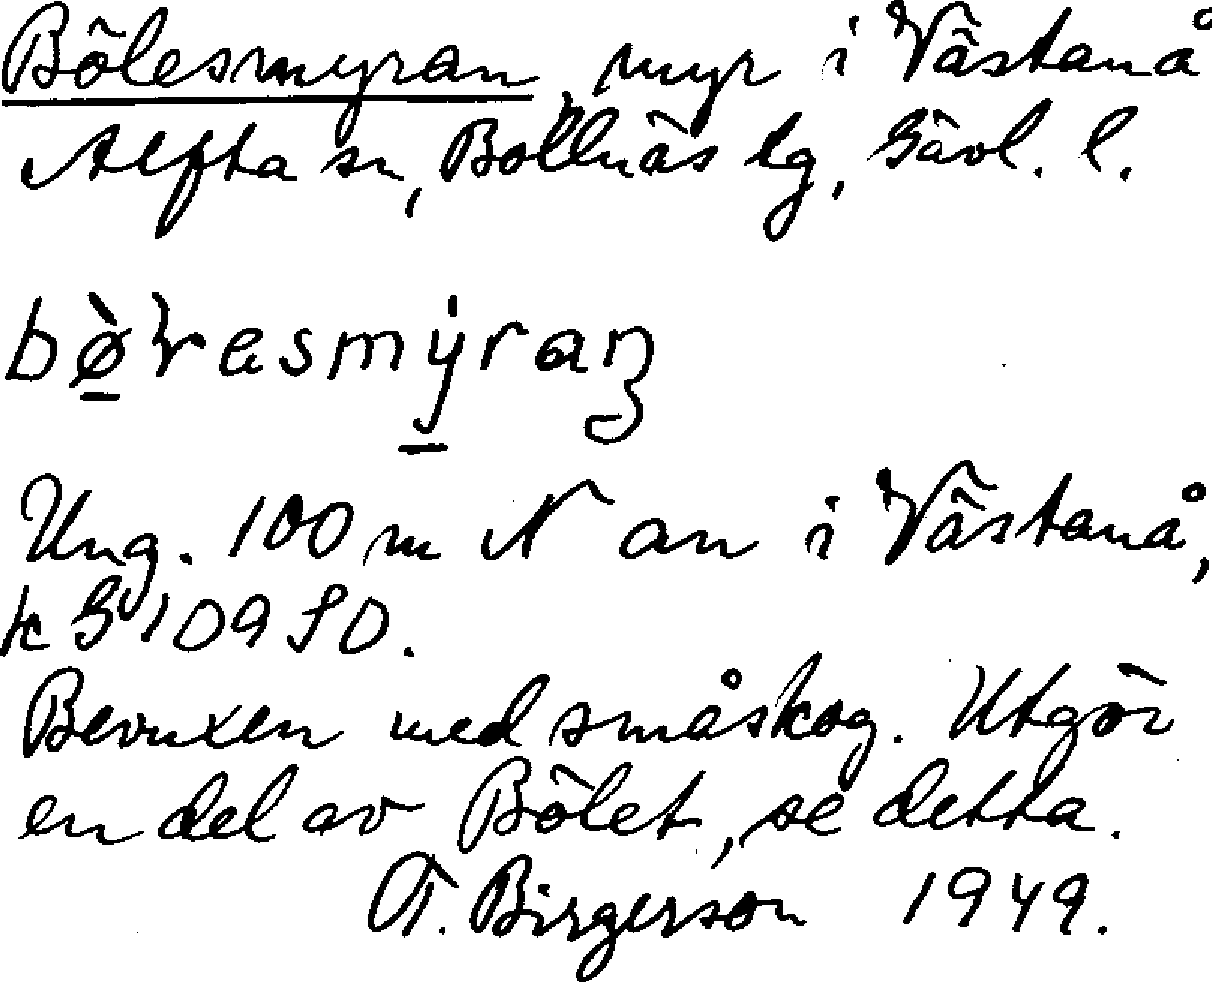 Bölesmyran, myr i Västanå
Alfta sn, Bollnäs tg, Gävl. l.
Ung. 100 m N an i Västanå,
Bevuxen med småskog. Utgör
en del av Bölet, se detta.
T. Birgerson 1949.